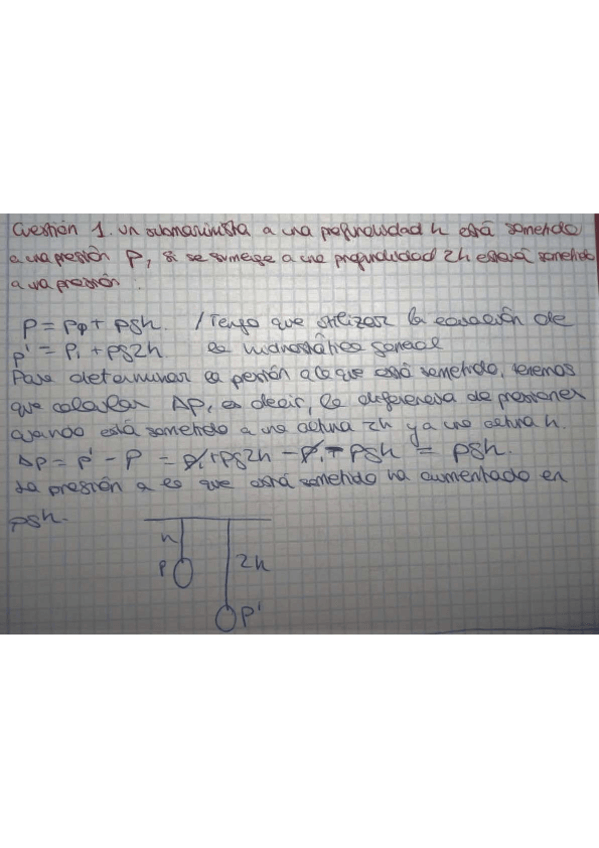 Cuestión 1. Un submarinista a una profundidad h está sometido
a una presión P, si se sumerge a una profundidad 2h estará sometido
a una presión :
P = P₁ + ρgh. / Tengo que utilizar la ecuación de
P' = P₁ + ρg2h. la hidrostática general
Para determinar la presión a la que está sometido, tenemos
que calcular ΔP, es decir, la diferencia de presiones
cuando está sometido a una altura 2h y a una altura h.
ΔP = P' - P = P₁ + ρg2h - P₁ - ρgh = ρgh.
La presión a la que está sometido ha aumentado en
ρgh.
h
P
2h
P'